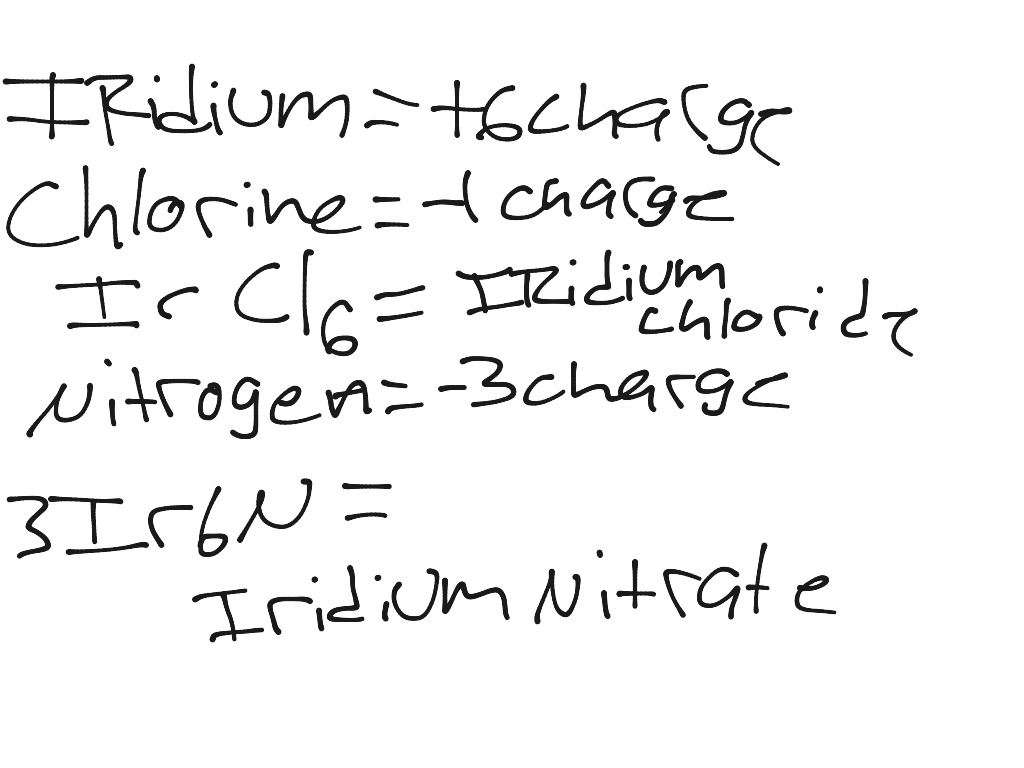 IRidium = +6 charge
Chlorine = -1 charge
Ir Cl6 = IRidium
chloride
Nitrogen = -3 charge
3Ir6N =
Iridium Nitrate